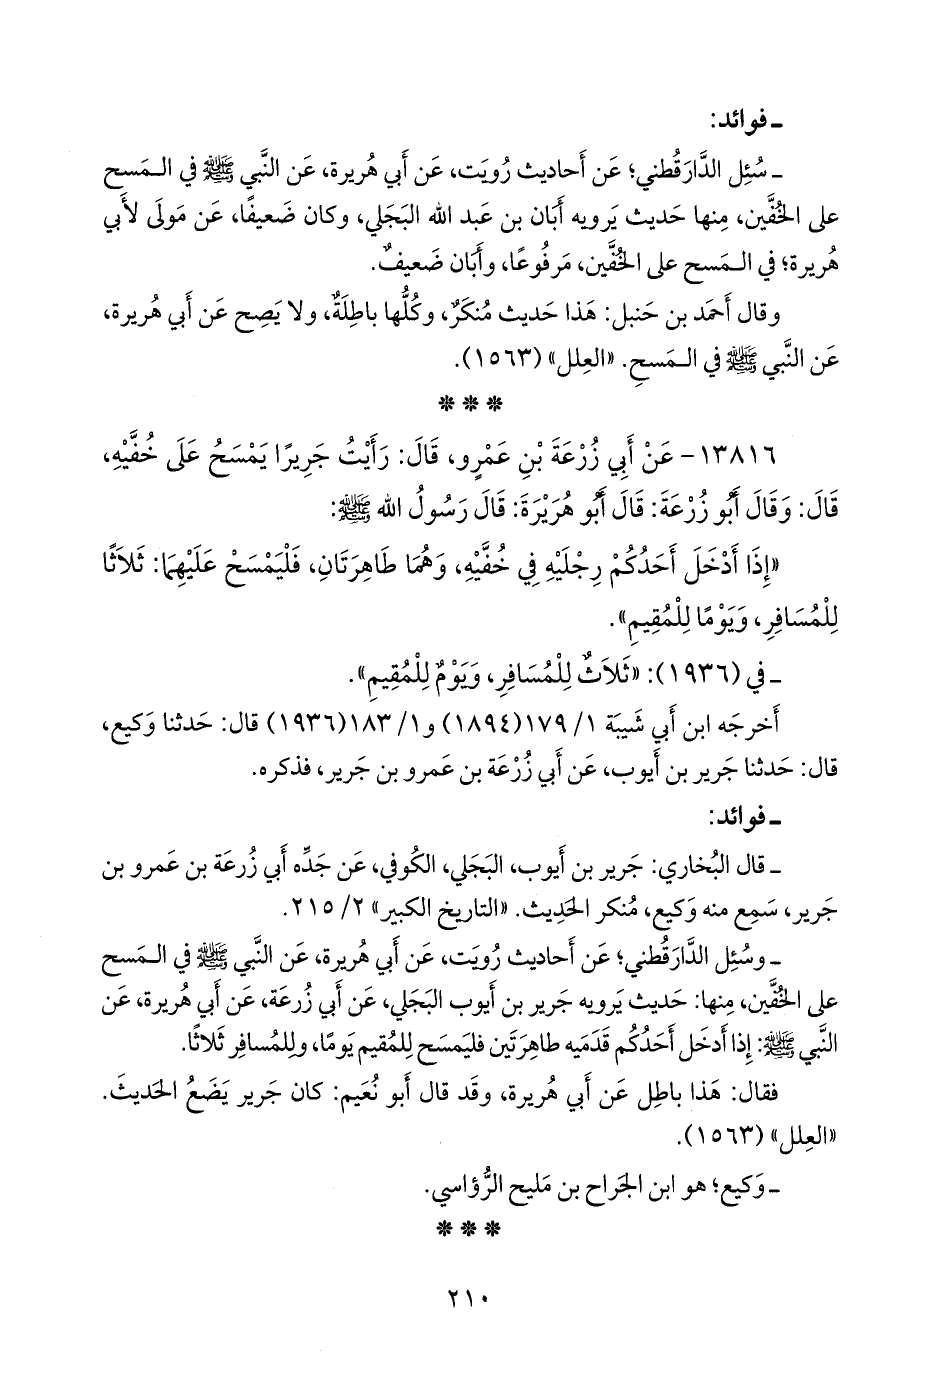 ـ فوائد:
ـ سُئِل الدَّارَقُطني؛ عَن أَحاديث رُويَت، عَن أَبي هُريرة، عَن النَّبي ﷺ في الـمَسح
على الخُفَّين، مِنها حَديث يَرويه أَبَان بن عَبد الله البَجَلي، وكان ضَعيفًا، عَن مَولَى لأَبي
هُريرة؛ في الـمَسح على الخُفَّين، مَرفُوعًا، وأَبَان ضَعيفٌ.
وقال أَحمَد بن حَنبل: هَذا حَديث مُنكَرٌ، وكُلُّها باطِلَةٌ، ولا يَصِح عَن أَبي هُريرة،
عَن النَّبي ﷺ في الـمَسحِ. «العِلل» (١٥٦٣).
* * *
١٣٨١٦- عَنْ أَبِي زُرْعَةَ بْنِ عَمْرٍو، قَالَ: رَأَيْتُ جَرِيرًا يَمْسَحُ عَلَى خُفَّيْهِ،
قَالَ: وَقَالَ أَبُو زُرْعَةَ: قَالَ أَبُو هُرَيْرَةَ: قَالَ رَسُولُ الله ﷺ:
«إِذَا أَدْخَلَ أَحَدُكُمْ رِجْلَيْهِ فِي خُفَّيْهِ، وَهُمَا طَاهِرَتَانِ، فَلْيَمْسَحْ عَلَيْهِمَا: ثَلاَثًا
لِلْمُسَافِرِ، وَيَوْمًا لِلْمُقِيمِ».
ـ في (١٩٣٦): «ثَلاَثٌ لِلْمُسَافِرِ، وَيَوْمٌ لِلْمُقِيمِ».
أَخرجَه ابن أَبي شَيبَة ١/ ١٧٩(١٨٩٤) و١/ ١٨٣(١٩٣٦) قال: حَدثنا وَكيع،
قال: حَدثنا جَرير بن أَيوب، عَن أَبي زُرْعَة بن عَمرو بن جَرير، فذكره.
ـ فوائد:
ـ قال البُخاري: جَرير بن أَيوب، البَجَلي، الكُوفي، عَن جَدِّه أَبي زُرعَة بن عَمرو بن
جَرير، سَمِع منه وَكيع، مُنكر الحَديث. «التاريخ الكبير» ٢/ ٢١٥.
ـ وسُئِل الدَّارَقُطني؛ عَن أَحاديث رُويَت، عَن أَبي هُريرة، عَن النَّبي ﷺ في الـمَسح
على الخُفَّين، مِنها: حَديث يَرويه جَرير بن أَيوب البَجَلي، عَن أَبي زُرعَة، عَن أَبي هُريرة، عَن
النَّبي ﷺ: إِذا أَدخَل أَحَدُكُم قَدَمَيه طاهِرَتَين فليَمسَح لِلمُقيم يَومًا، ولِلمُسافِر ثَلاثًا.
فقال: هَذا باطِل عَن أَبي هُريرة، وقَد قال أَبو نُعَيم: كان جَرير يَضَعُ الحَديثَ.
«العِلل» (١٥٦٣).
ـ وَكيع؛ هو ابن الجَراح بن مَليح الرُّؤاسي.
* * *
٢١٠